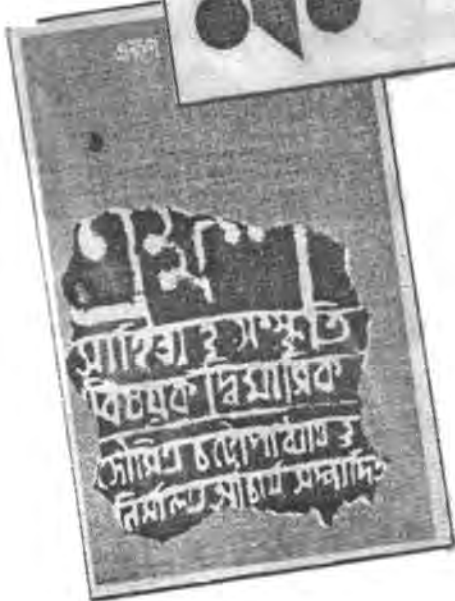 এক্ষণ
সাহিত্য ও সংস্কৃতি
বিষয়ক দ্বিমাসিক
সৌমিত্র চট্টোপাধ্যায় ও
নির্মাল্য আচার্য সম্পাদিত